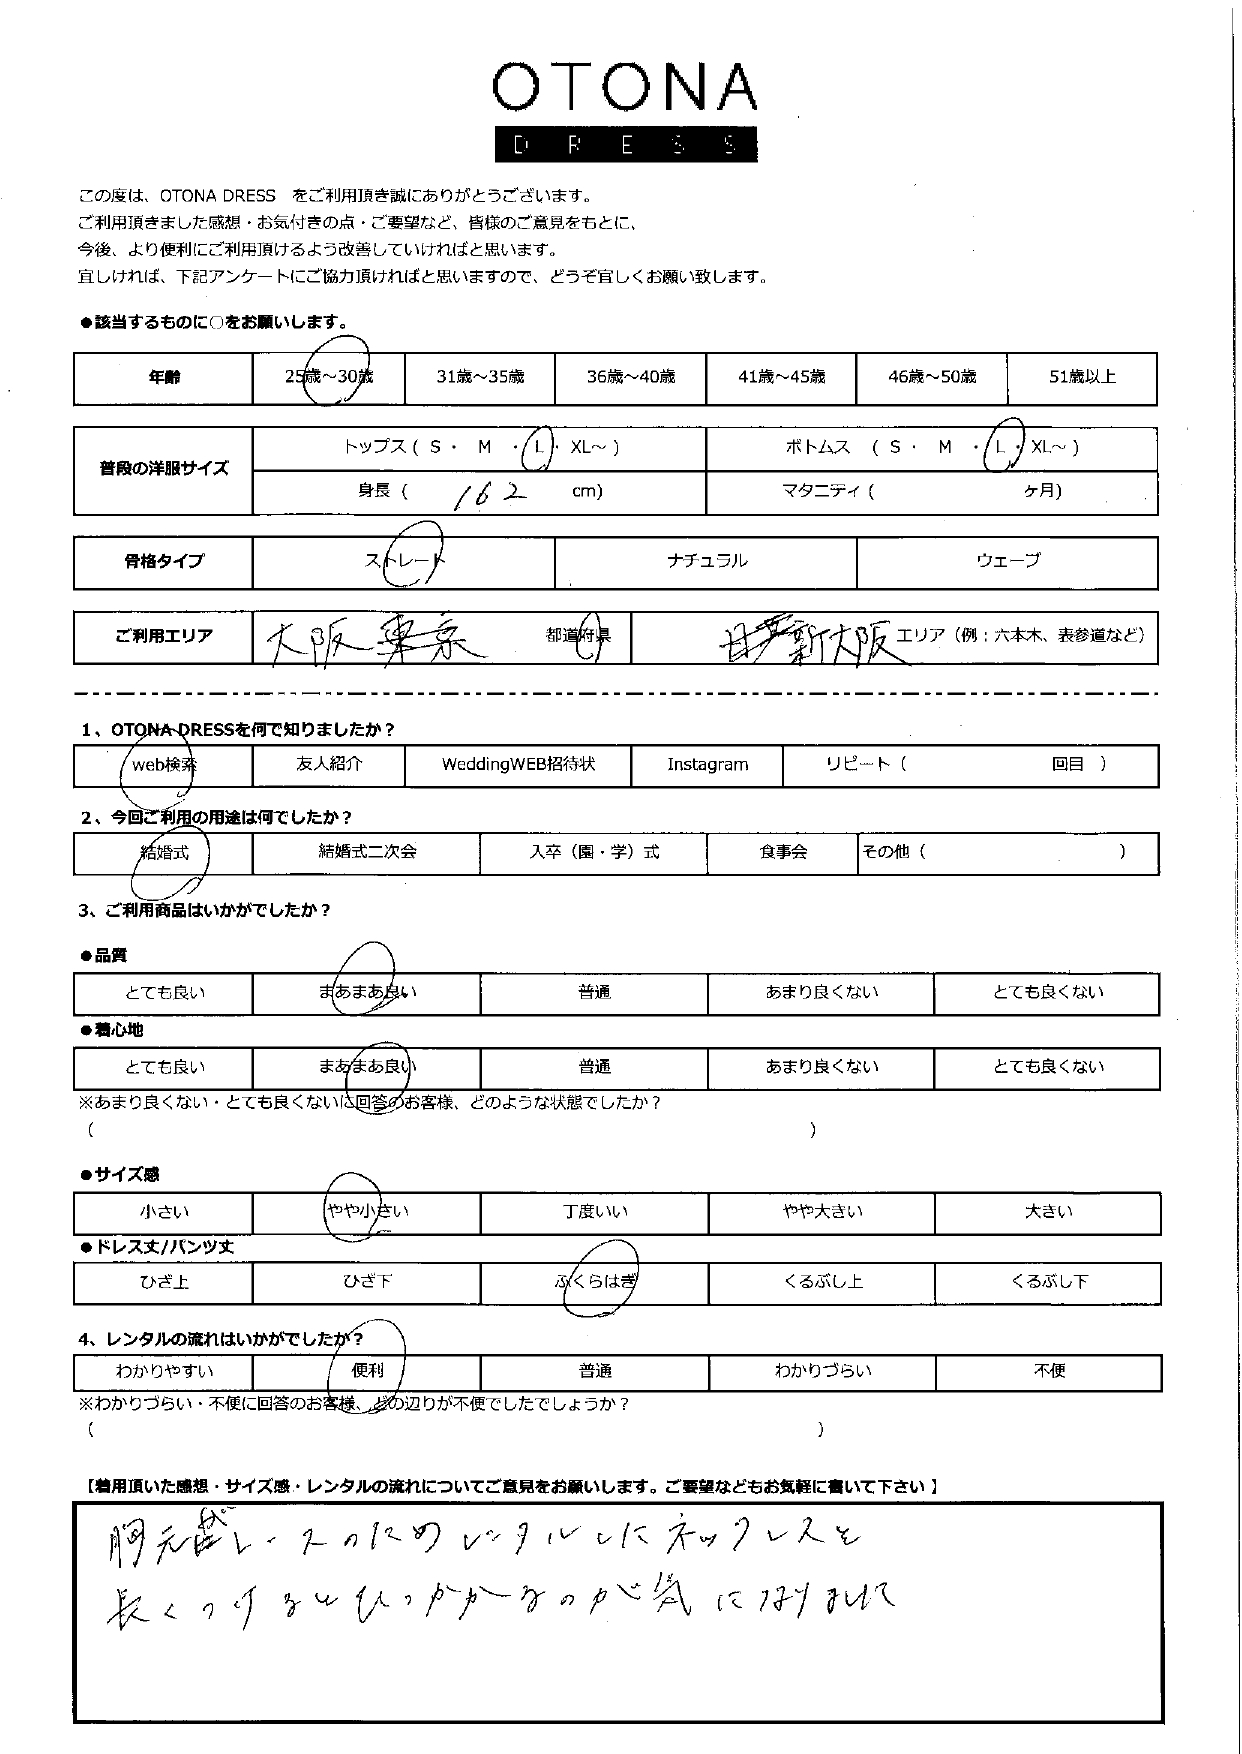 OTONA
DRESS
この度は、OTONA DRESS　をご利用頂き誠にありがとうございます。
ご利用頂きました感想・お気付きの点・ご要望など、皆様のご意見をもとに、
今後、より便利にご利用頂けるよう改善していければと思います。
宜しければ、下記アンケートにご協力頂ければと思いますので、どうぞ宜しくお願い致します。
●該当するものに○をお願いします。
年齢 25歳～30歳 31歳～35歳 36歳～40歳 41歳～45歳 46歳～50歳 51歳以上
普段の洋服サイズ トップス ( S ・ M ・ L ・ XL～ ) ボトムス ( S ・ M ・ L ・ XL～ )
身長 ( 162 cm) マタニティ ( ヶ月)
骨格タイプ ストレート ナチュラル ウェーブ
ご利用エリア 大阪 東京 都道府県 新大阪 エリア（例：六本木、表参道など）
1、OTONA DRESSを何で知りましたか？
web検索 友人紹介 WeddingWEB招待状 Instagram リピート（ 回目 ）
2、今回ご利用の用途は何でしたか？
結婚式 結婚式二次会 入卒（園・学）式 食事会 その他（ ）
3、ご利用商品はいかがでしたか？
●品質
とても良い まあまあ良い 普通 あまり良くない とても良くない
●着心地
とても良い まあまあ良い 普通 あまり良くない とても良くない
※あまり良くない・とても良くないに回答のお客様、どのような状態でしたか？
（ ）
●サイズ感
小さい やや小さい 丁度いい やや大きい 大きい
●ドレス丈/パンツ丈
ひざ上 ひざ下 ふくらはぎ くるぶし上 くるぶし下
4、レンタルの流れはいかがでしたか？
わかりやすい 便利 普通 わかりづらい 不便
※わかりづらい・不便に回答のお客様、どの辺りが不便でしたでしょうか？
（ ）
【着用頂いた感想・サイズ感・レンタルの流れについてご意見をお願いします。ご要望などもお気軽に書いて下さい】
胸元がレースのためレンタルしたネックレスを
長くつけるとひっかかるのが気になりまして